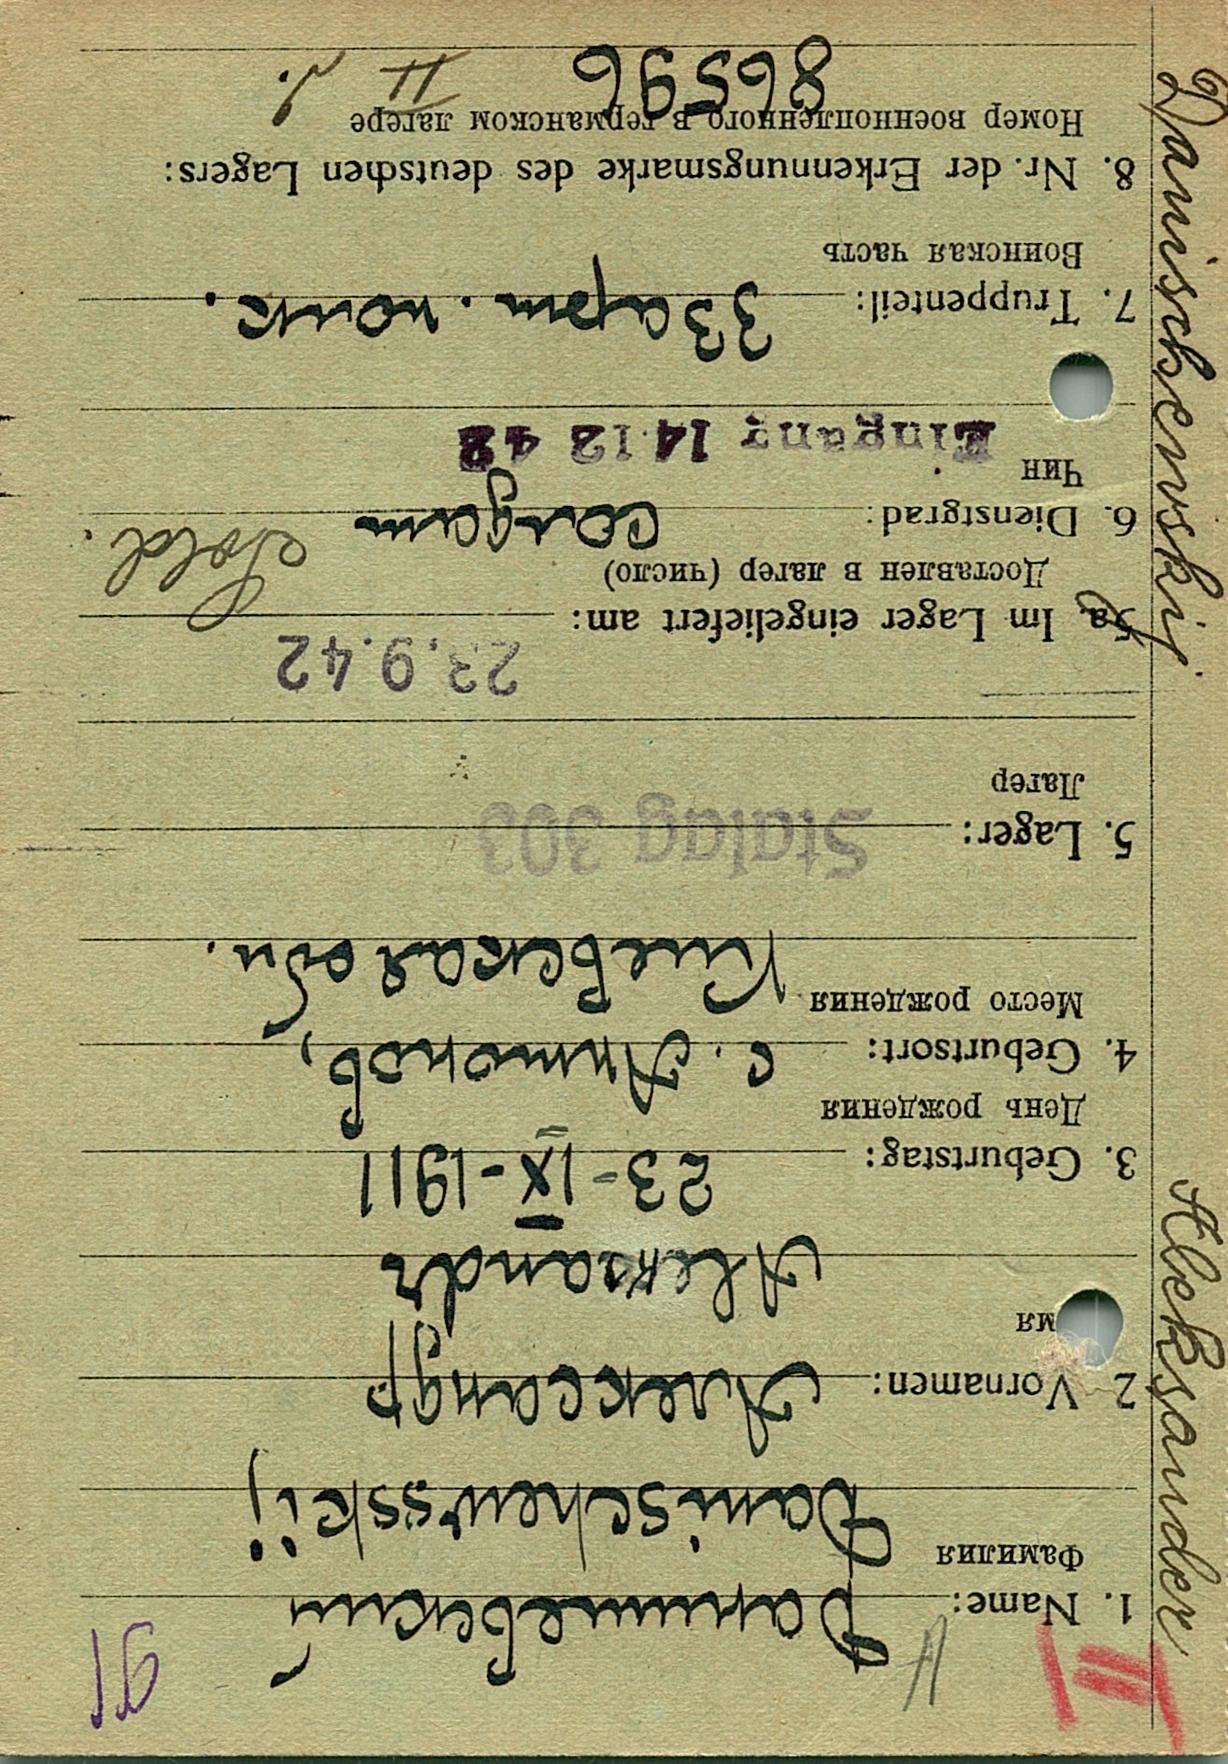 91
1. Name: Данишевский
Фамилия
Danischewsskij
2 Vornamen: Александр
мя
Alexandr
3. Geburtstag: 23-IX-1911
День рождения
4. Geburtsort: с. Антонов,
Место рождения Киевская обл.
5. Lager: Stalag 303
Лагер
23.9.42
5a. Im Lager eingeliefert am:
Доставлен в лагер (число)
6. Dienstgrad: солдат Sold.
Чин
Eingang 14 12 42
7. Truppenteil: 33 арт. полк.
Воинская часть
8. Nr. der Erkennungsmarke des deutschen Lagers:
Номер военнопленного в германском лагере
86596 II
Danischewskij Aleksander